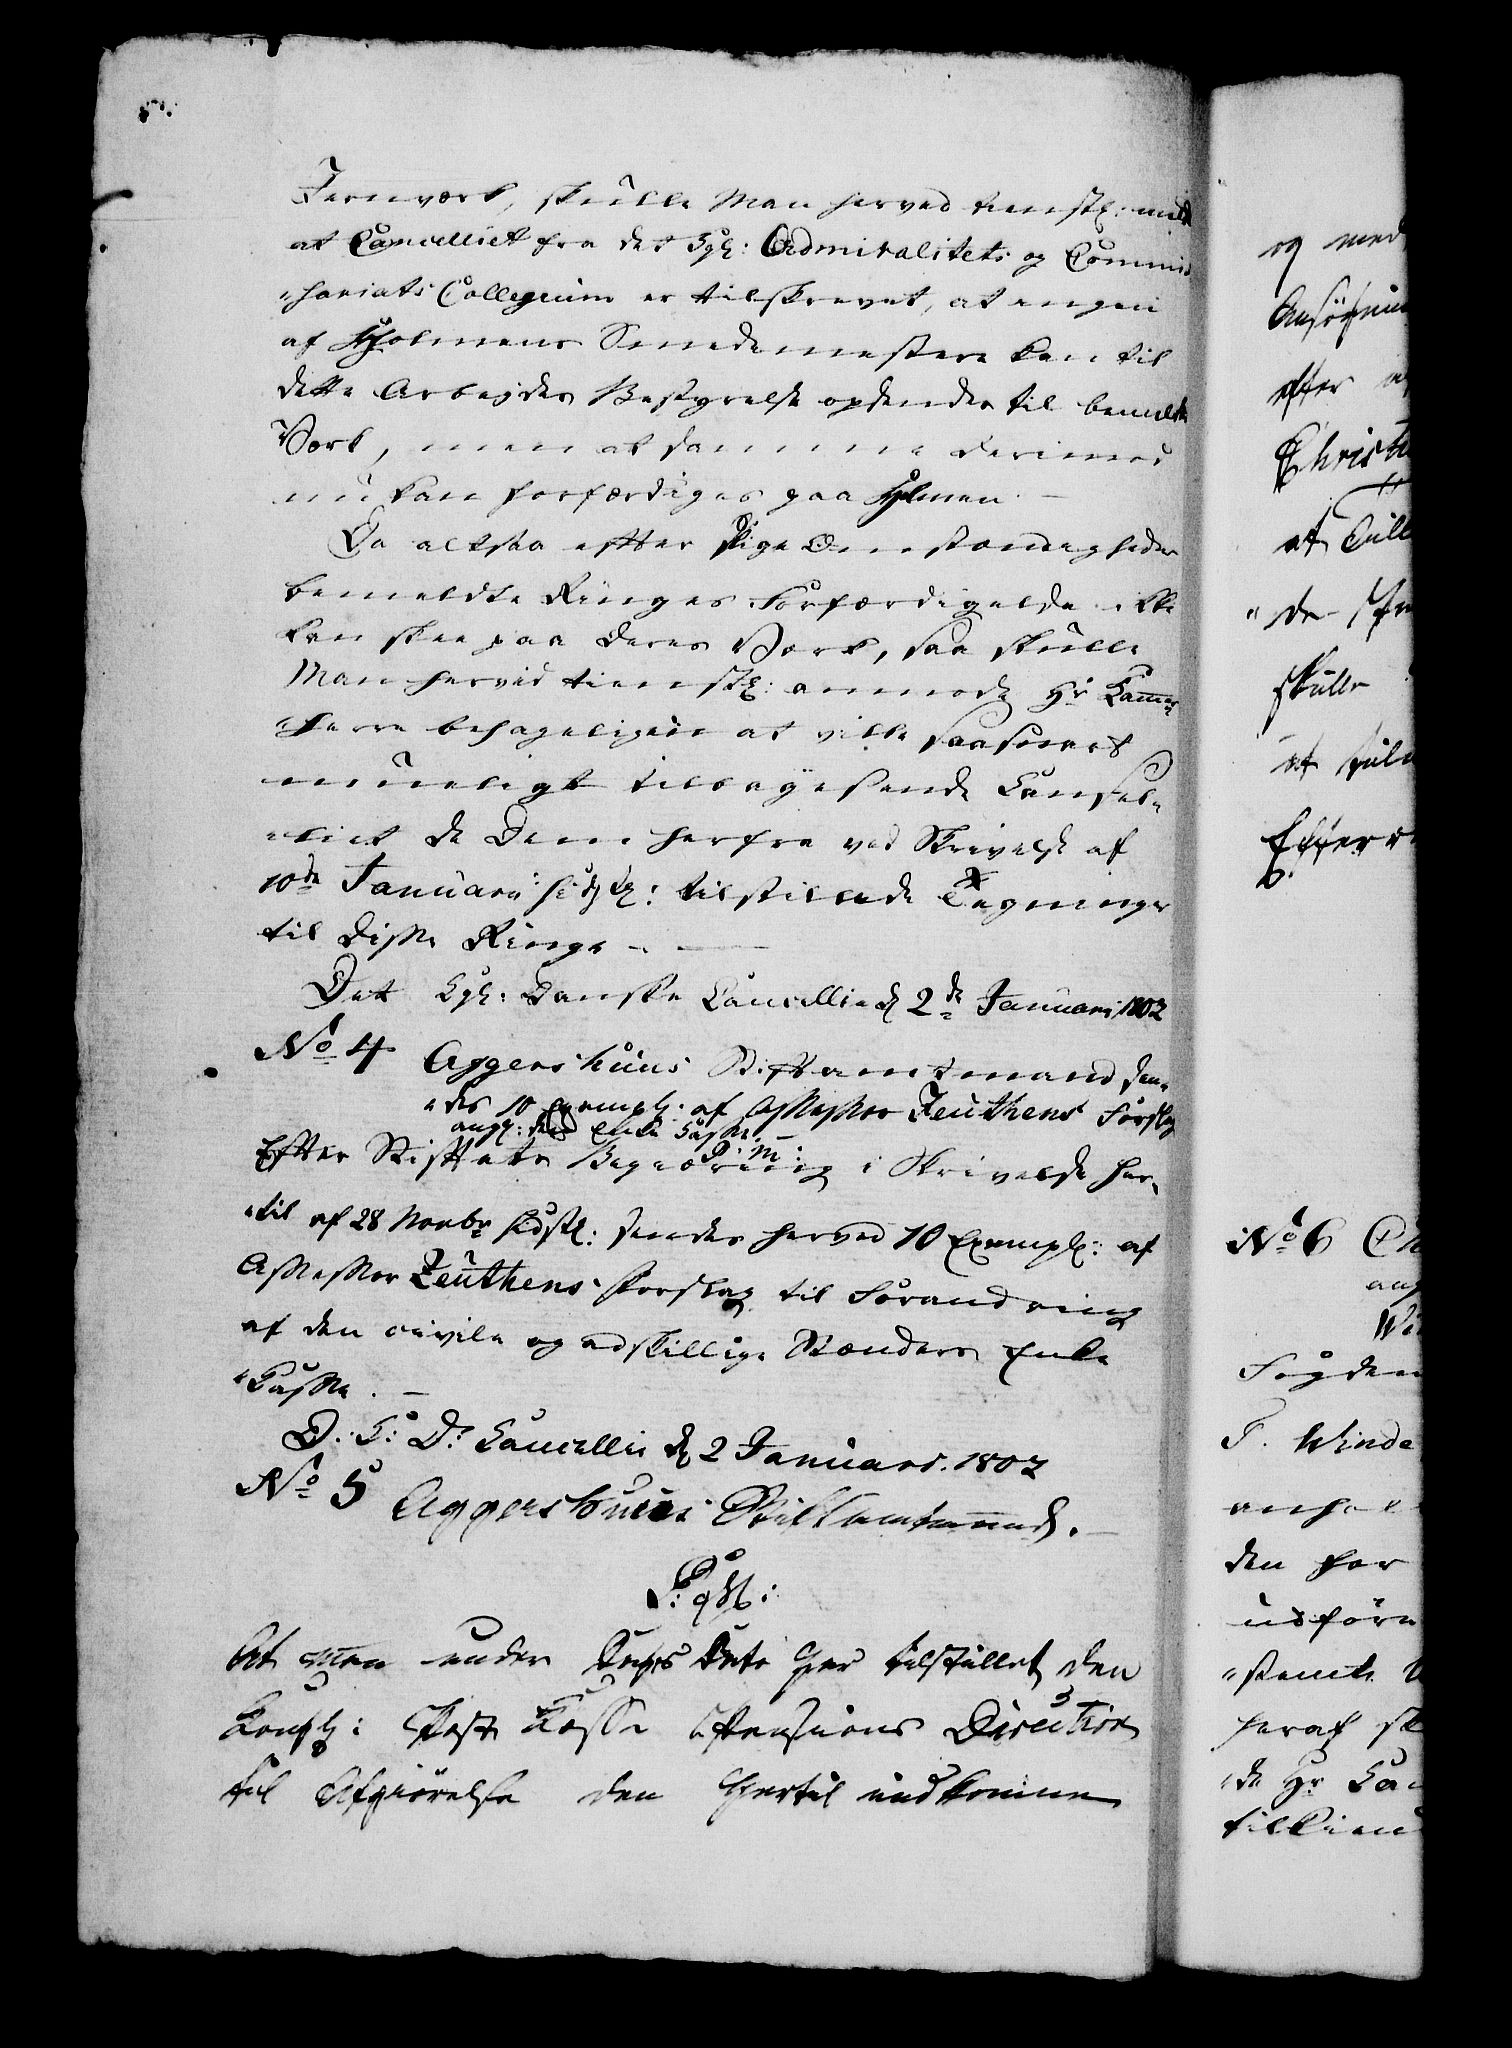 Jernværk, skulle Man herved tienstl: meld
at Cancelliet fra det Kgl: Admiralitets og Commis
"sariats Collegium er tilskrevet, at ingen
af Holmens Smedemestere kan til
dette Arbeides Bestyrelse opsendes til bemeldte
Værk, men at samme derimod
nu kan forfærdiges paa Holmen. —
Da altsaa efter slige Omstændigheder
bemeldte Ringes Forfærdigelse ikke
kan skee paa Deres Værk, saa skulle
Man herved tienstl: anmode Hr Kammer
"herre behageligen at ville saasnart
mueligt tilbagesende Cancel
"liet de Dem herfra ved Skrivelse af
10de Januarii sidstl: tilstillede Tegninger
til disse Ringe. —
Det Kgl: Danske Cancellie d 2de Januarii 1802
No 4 Aggershuus Stiftamtmand sen
"des 10 Exempl: af Assessor Zeuthens Forslag
ang: den Enke Kasse
P: M:
Efter Stiftets Begiæring i Skrivelse her
"til af 28 Novbr sidstl: sendes herved 10 Exempl: af
Assessor Zeuthens Forslag til Forandring
af den civile og adskillige Stænders Enke
"Kasse. —
D. K: D: Cancellie d 2 Januari. 1802
No 5 Aggershuus Stiftamtmand. —
At man under Dags Dato har tilstillet den
Kongl: Post Kasse Pensions Direction
til Afgiørelse den hertil indkomne
og med
Ansøgnin
efter
Christi
at
"de
skulle
at
No 6 Ch
ang
Wi
Fogden
T. Winde
anh
den her
udføre
"stemte
heraf sk
"de Hr Ca
tilkiend